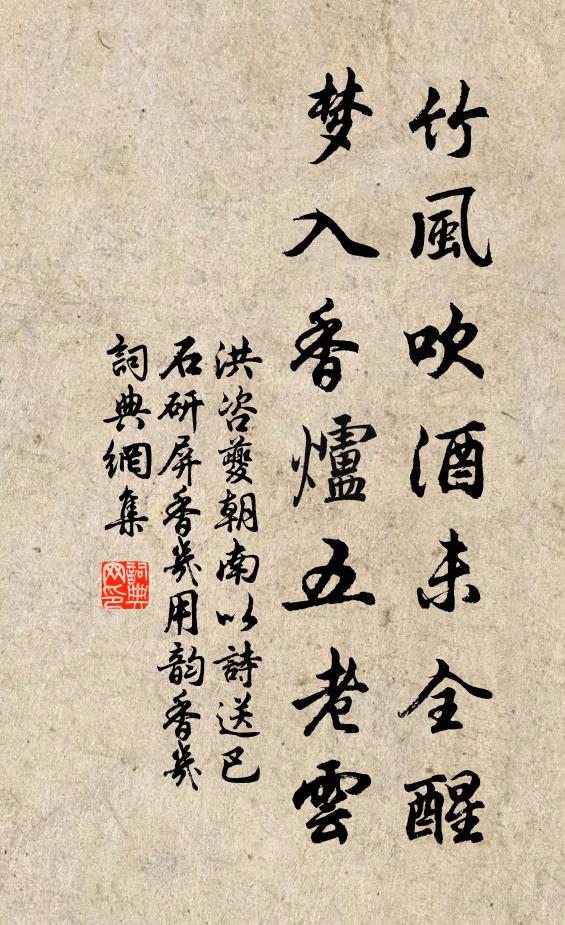 竹風吹酒未全醒
梦入香爐五老雲
洪咨夔朝南以詩送巴
石研屏香几用韵香几
詞典網集
詞典
网印